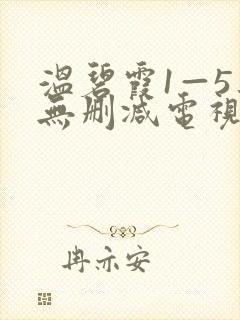 溫碧霞1—5
無刪減電視
冉亦安